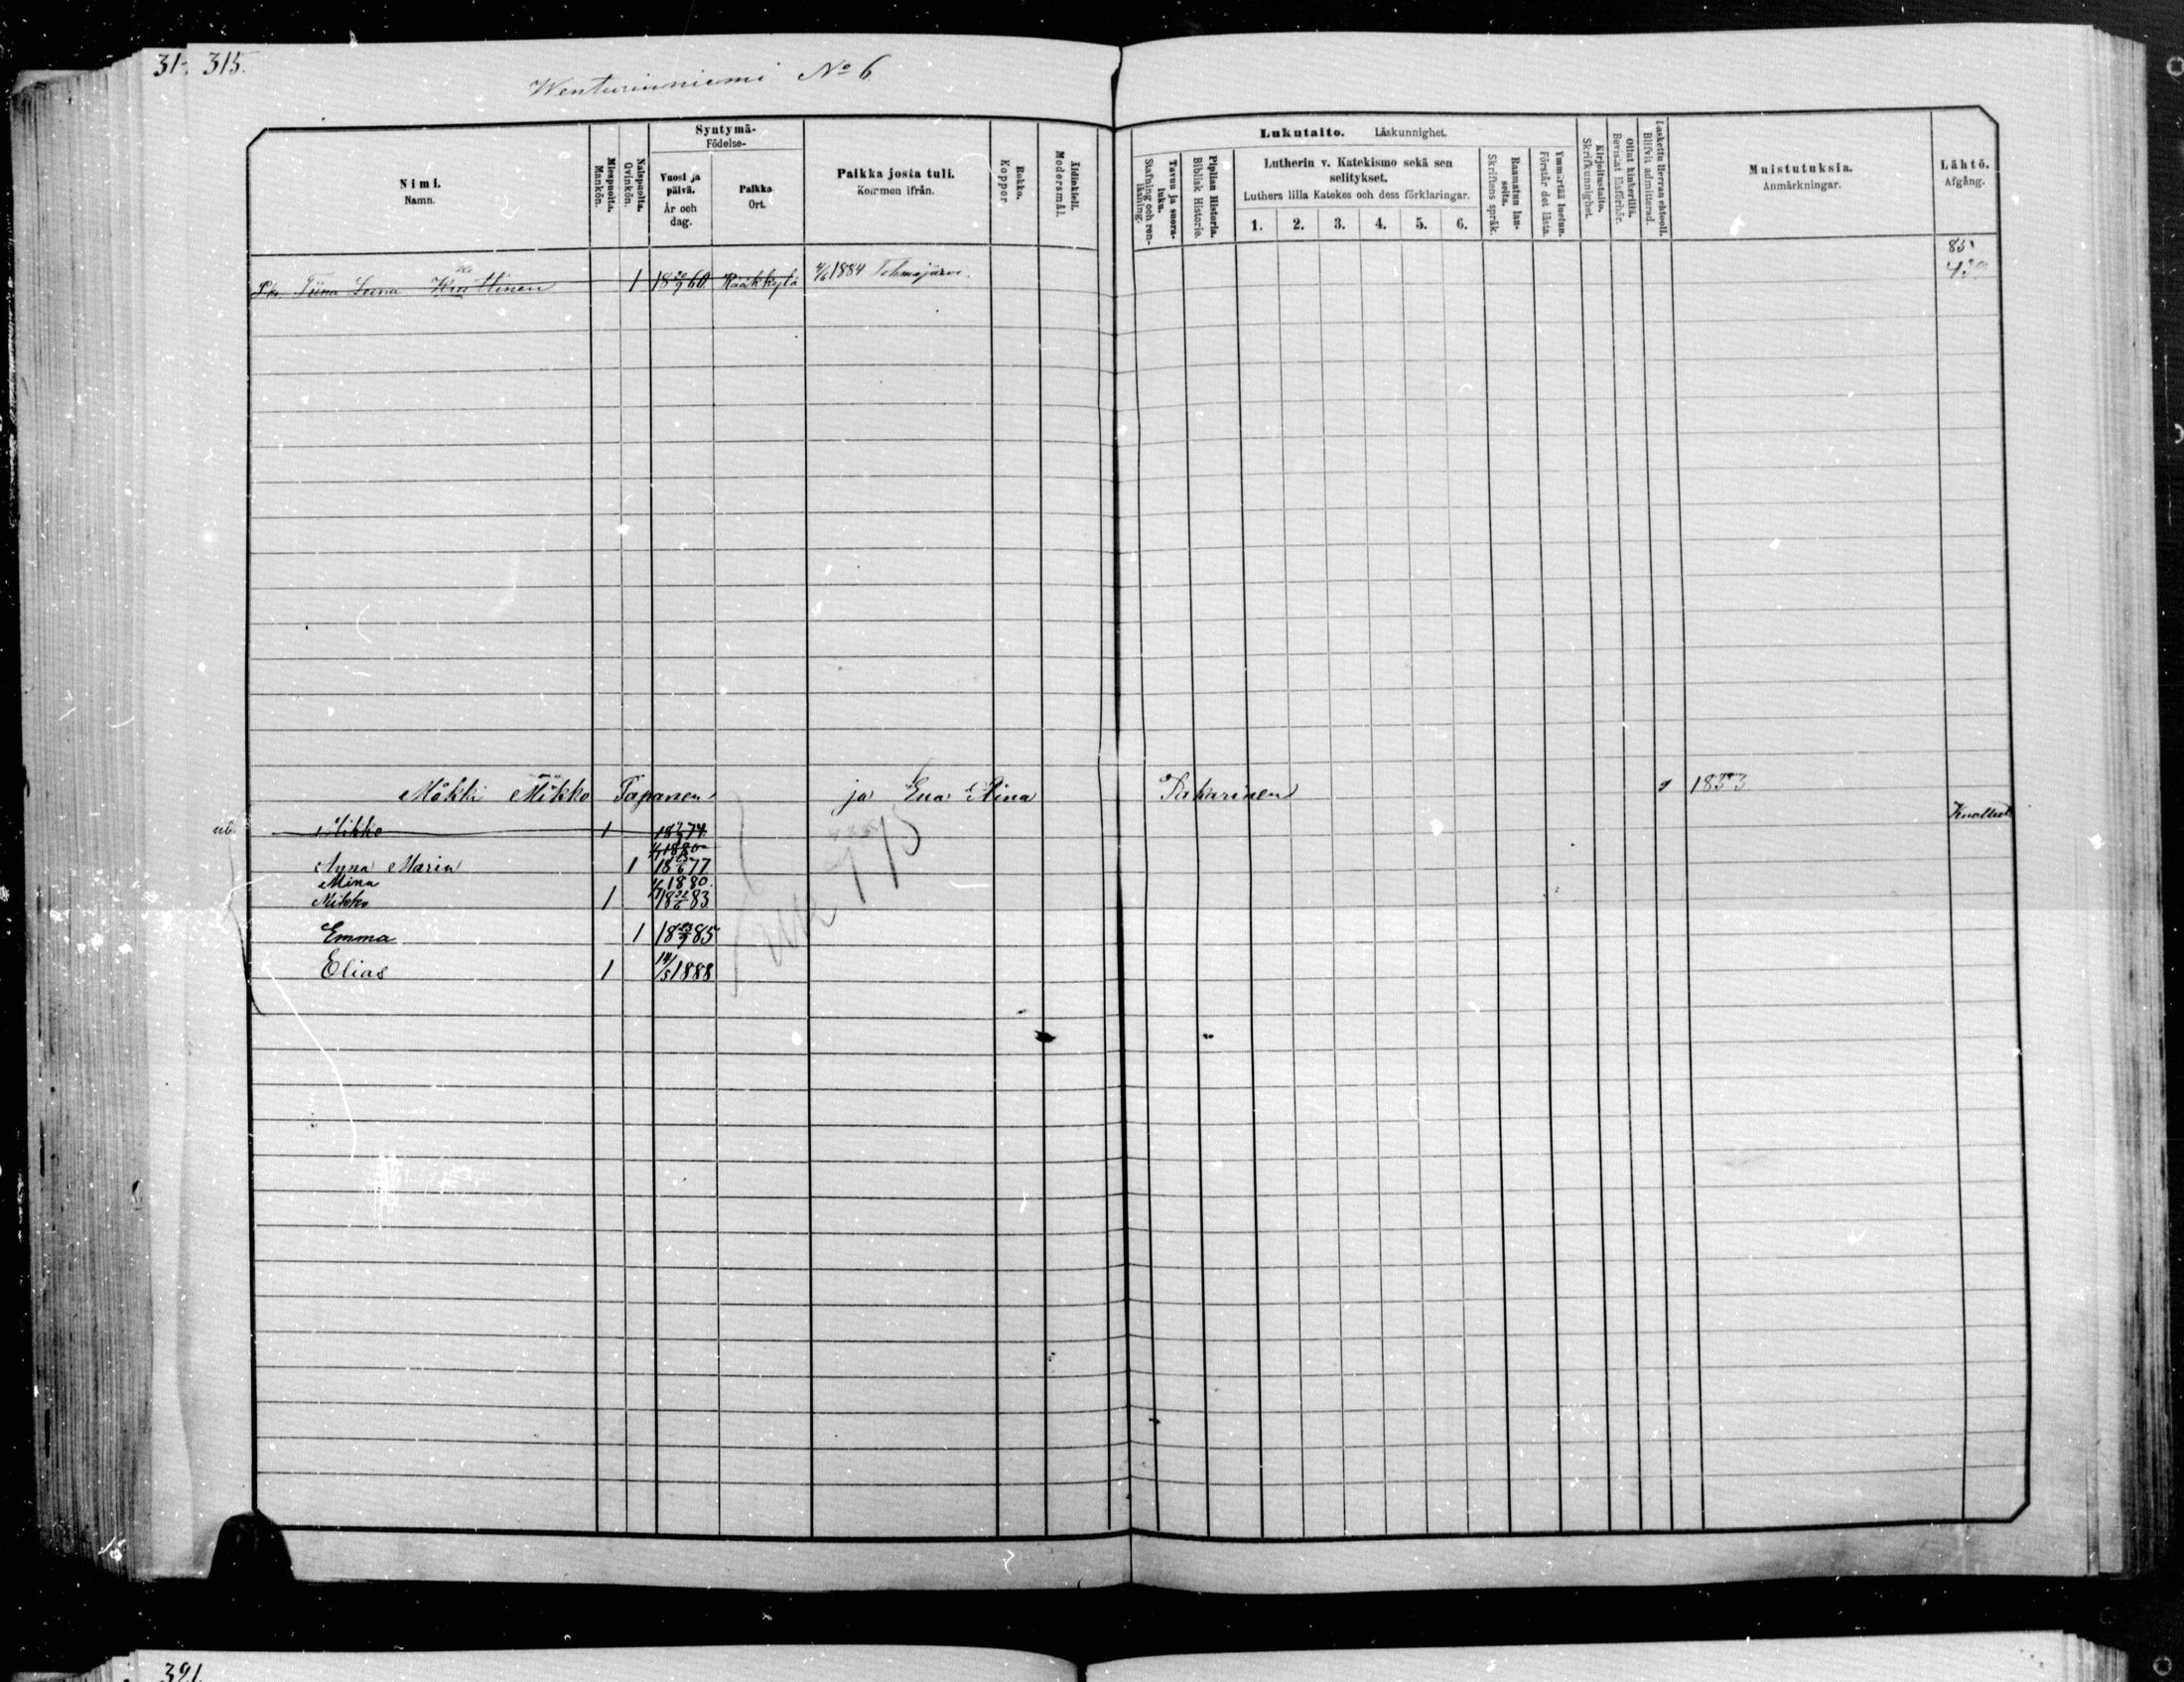 315.
Wenturinniemi № 6
Syntymä-
Födelse-
Nimi.
Namn.
Miespuolta.
Mankön.
Naispuolta.
Qvinkön.
Vuosi ja päivä.
År och dag.
Paikka
Ort.
Paikka josta tuli.
Kommen ifrån.
Rokko.
Koppor.
Äidinkieli.
Modersmål.
Lukutaito. Läskunnighet.
Tavuu ja suora-luku.
Stafning och ren-läsning.
Piplian Historia.
Biblisk Historie.
Lutherin v. Katekismo sekä sen selitykset.
Luthers lilla Katekes och dess förklaringar.
1. 2. 3. 4. 5. 6.
Raamatun lau-seita.
Skriftens språk.
Ymmärtää luetun.
Förstår det lästa.
Kirjoitustaito.
Skrifkunnighet.
Ollut kinkerillä.
Bevistat läsförhör.
Laskettu Herran ehtool.
Blifvit admitterad.
Muistutuksia.
Anmärkningar.
Lähtö.
Afgång.
Tiina Leena 1 18 60 Rääkkylä 4/6 1884 Tohmajärvi.
Mökki Mikko Tapanen ja Eva Stina Pakarinen 1853
Mikko 1 18 74 Kuollut
Anna Maria 1 18 77
Mina 1880
Mikko 1 18 83
Emma 1 18 85
Elias 1 14/5 1888
321